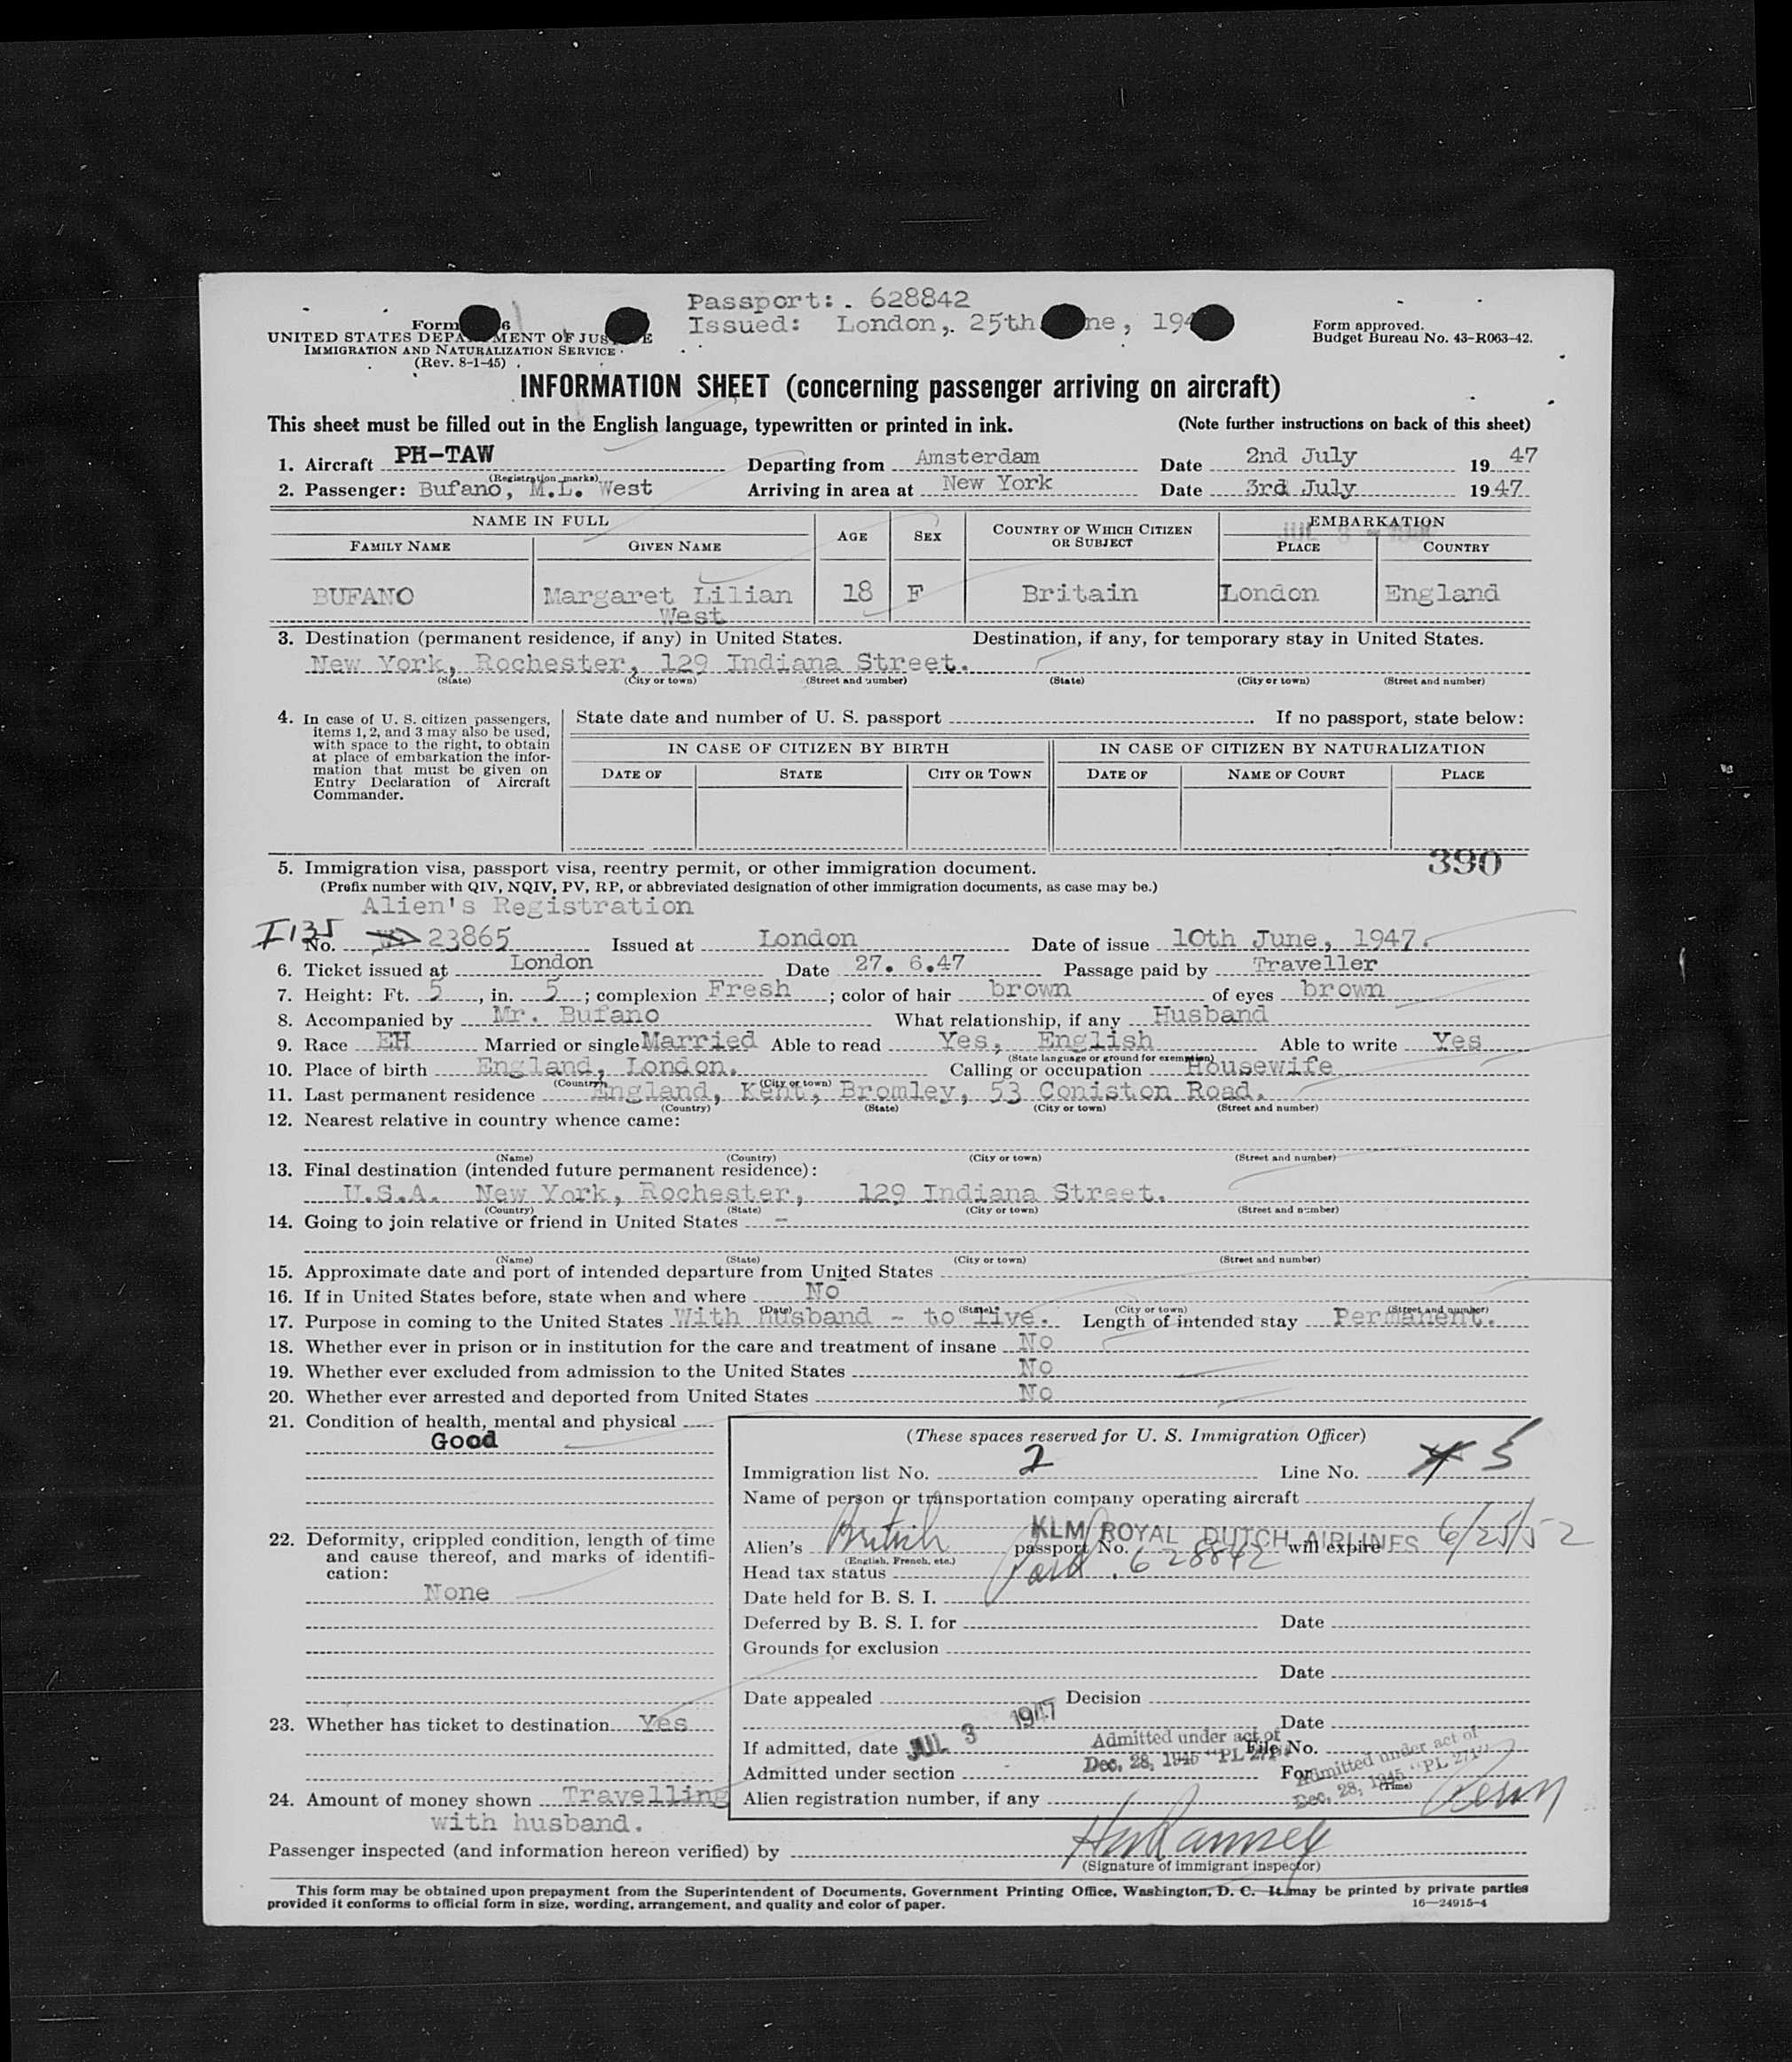 Passport: . 628842
Issued: London, 25th ne, 194
Form 6
UNITED STATES DEPA MENT OF JUS E
IMMIGRATION AND NATURALIZATION SERVICE
(Rev. 8-1-45)
Form approved.
Budget Bureau No. 43-R063-42.
INFORMATION SHEET (concerning passenger arriving on aircraft)
This sheet must be filled out in the English language, typewritten or printed in ink. (Note further instructions on back of this sheet)
1. Aircraft PH-TAW Departing from Amsterdam Date 2nd July 1947
(Registration marks)
2. Passenger: Bufano, M.L. West Arriving in area at New York Date 3rd July 1947
NAME IN FULL AGE SEX COUNTRY OF WHICH CITIZEN OR SUBJECT EMBARKATION
FAMILY NAME GIVEN NAME PLACE COUNTRY
BUFANO Margaret Lilian West 18 F Britain London England
3. Destination (permanent residence, if any) in United States. Destination, if any, for temporary stay in United States.
New York, Rochester, 129 Indiana Street.
(State) (City or town) (Street and number) (State) (City or town) (Street and number)
4. In case of U. S. citizen passengers, items 1, 2, and 3 may also be used, with space to the right, to obtain at place of embarkation the information that must be given on Entry Declaration of Aircraft Commander.
State date and number of U. S. passport If no passport, state below:
IN CASE OF CITIZEN BY BIRTH IN CASE OF CITIZEN BY NATURALIZATION
DATE OF STATE CITY OR TOWN DATE OF NAME OF COURT PLACE
390
5. Immigration visa, passport visa, reentry permit, or other immigration document.
(Prefix number with QIV, NQIV, PV, RP, or abbreviated designation of other immigration documents, as case may be.)
Alien's Registration
I135 No. 23865 Issued at London Date of issue 10th June, 1947.
6. Ticket issued at London Date 27. 6.47 Passage paid by Traveller
7. Height: Ft. 5, in. 5; complexion Fresh; color of hair brown of eyes brown
8. Accompanied by Mr. Bufano What relationship, if any Husband
9. Race EH Married or single Married Able to read Yes, English Able to write Yes
(State language or ground for exemption)
10. Place of birth England, London. Calling or occupation Housewife
(Country) (City or town)
11. Last permanent residence England, Kent, Bromley, 53 Coniston Road.
(Country) (State) (City or town) (Street and number)
12. Nearest relative in country whence came:
(Name) (Country) (City or town) (Street and number)
13. Final destination (intended future permanent residence):
U.S.A. New York, Rochester, 129 Indiana Street.
(Country) (State) (City or town) (Street and number)
14. Going to join relative or friend in United States -
(Name) (State) (City or town) (Street and number)
15. Approximate date and port of intended departure from United States
16. If in United States before, state when and where No
(Date) (State) (City or town) (Street and number)
17. Purpose in coming to the United States With Husband - to live. Length of intended stay Permanent.
18. Whether ever in prison or in institution for the care and treatment of insane No
19. Whether ever excluded from admission to the United States No
20. Whether ever arrested and deported from United States No
21. Condition of health, mental and physical
Good
22. Deformity, crippled condition, length of time and cause thereof, and marks of identification:
None
23. Whether has ticket to destination Yes
24. Amount of money shown Travelling
with husband.
(These spaces reserved for U. S. Immigration Officer)
Immigration list No. 2 Line No. 5
Name of person or transportation company operating aircraft
KLM ROYAL DUTCH AIRLINES
Alien's British passport No. 628842 will expire 6/25/52
(English, French, etc.)
Head tax status Paid
Date held for B. S. I.
Deferred by B. S. I. for Date
Grounds for exclusion
Date
Date appealed Decision
Date
If admitted, date JUL 3 1947 File No.
Admitted under act of
Dec. 28, 1945 "PL 271"
Admitted under section For
(Time)
Admitted under act of
Dec. 28, 1945 "PL 271"
Alien registration number, if any
Passenger inspected (and information hereon verified) by
(Signature of immigrant inspector)
This form may be obtained upon prepayment from the Superintendent of Documents, Government Printing Office, Washington, D. C. It may be printed by private parties
provided it conforms to official form in size, wording, arrangement, and quality and color of paper. 16—24915-4